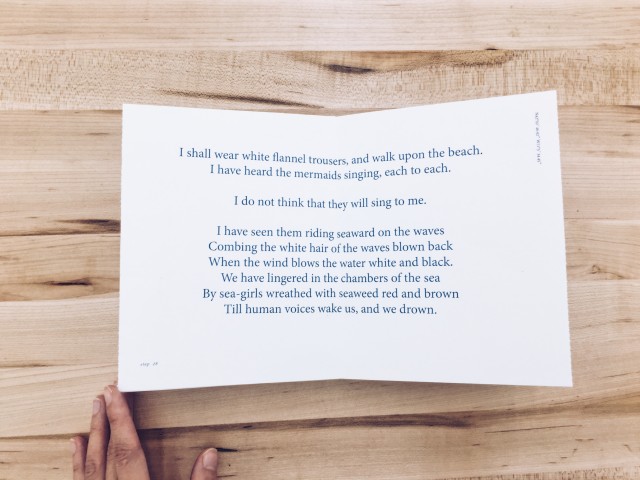 I shall wear white flannel trousers, and walk upon the beach.
I have heard the mermaids singing, each to each.
I do not think that they will sing to me.
I have seen them riding seaward on the waves
Combing the white hair of the waves blown back
When the wind blows the water white and black.
We have lingered in the chambers of the sea
By sea-girls wreathed with seaweed red and brown
Till human voices wake us, and we drown.